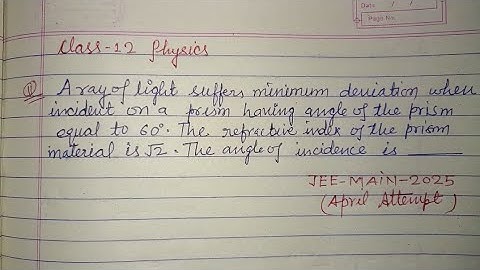 Date / /
Page No.
Class-12 Physics
Q A ray of light suffers minimum deviation when
incident on a prism having angle of the prism
equal to 60°. The refractive index of the prism
material is √2. The angle of incidence is ______
JEE-MAIN-2025
(April Attempt)